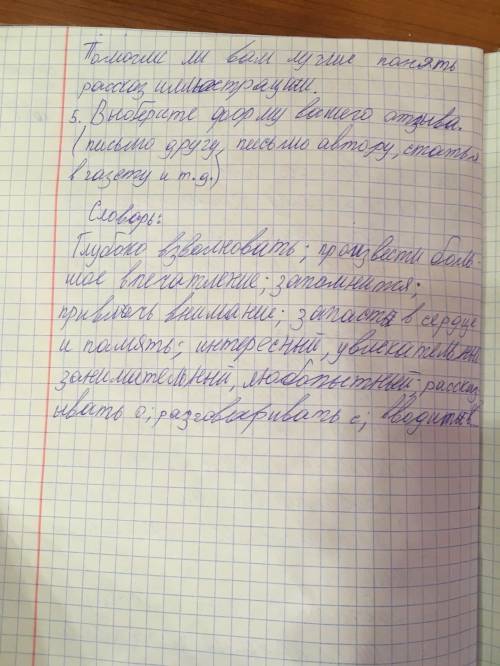 Помогли ли вам лучше понять
рассказ иллюстрации.
5. Выберите форму вашего отзыва.
(письмо другу, письмо автору, статья
в газету и т.д.)
Словарь:
Глубоко взволновать; произвести боль-
шое впечатление; запомнится;
привлечь внимание; запасть в сердце
и память; интересный, увлекательный
занимательный, любопытный; рассказ
ывать о; разговаривать с; вводить в